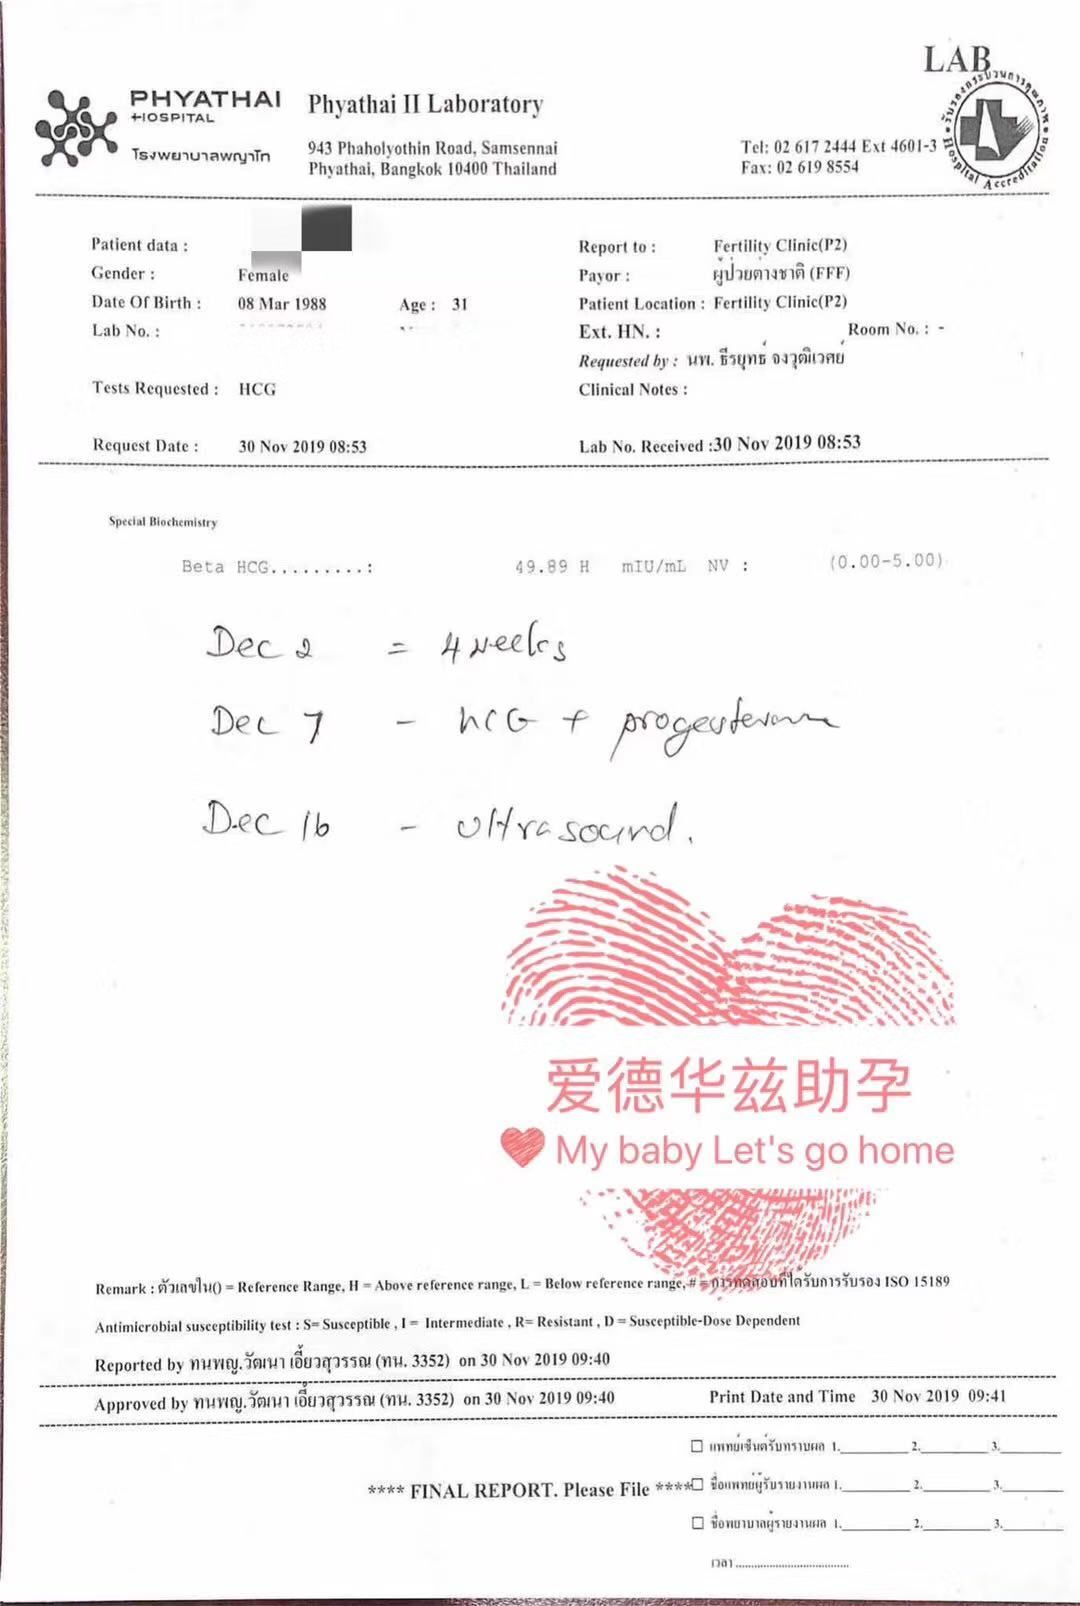 LAB
PHYATHAI
HOSPITAL
โรงพยาบาลพญาไท
Phyathai II Laboratory
943 Phaholyothin Road, Samsennai
Phyathai, Bangkok 10400 Thailand
Tel: 02 617 2444 Ext 4601-3
Fax: 02 619 8554
Hospital Accreditation
Patient data :
Gender : Female
Date Of Birth : 08 Mar 1988 Age : 31
Lab No. :
Tests Requested : HCG
Request Date : 30 Nov 2019 08:53
Report to : Fertility Clinic(P2)
Payor : ผู้ป่วยต่างชาติ (FFF)
Patient Location : Fertility Clinic(P2)
Ext. HN. : Room No. : -
Requested by : นพ. ธีรยุทธ์ จงวุฒิเวศย์
Clinical Notes :
Lab No. Received :30 Nov 2019 08:53
Special Biochemistry
Beta HCG.........: 49.89 H mIU/mL NV : (0.00-5.00)
Dec 2 = 4 weeks
Dec 7 - hCG + progesterone
Dec 16 - ultrasound.
爱德华兹助孕
My baby Let's go home
Remark : ตัวเลขใน() = Reference Range, H = Above reference range, L = Below reference range, # = การทดสอบที่ได้รับการรับรอง ISO 15189
Antimicrobial susceptibility test : S= Susceptible , I = Intermediate , R= Resistant , D = Susceptible-Dose Dependent
Reported by ทนพญ.วัฒนา เอี้ยวสุวรรณ (ทน. 3352) on 30 Nov 2019 09:40
Approved by ทนพญ.วัฒนา เอี้ยวสุวรรณ (ทน. 3352) on 30 Nov 2019 09:40 Print Date and Time 30 Nov 2019 09:41
แพทย์เซ็นต์รับทราบผล 1. 2. 3.
**** FINAL REPORT. Please File **** ชื่อแพทย์ผู้รับรายงานผล 1. 2. 3.
ชื่อพยาบาลผู้รายงานผล 1. 2. 3.
เวลา